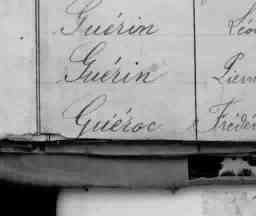 Guérin Léo
Guérin Pierr
Guéroc Frédér